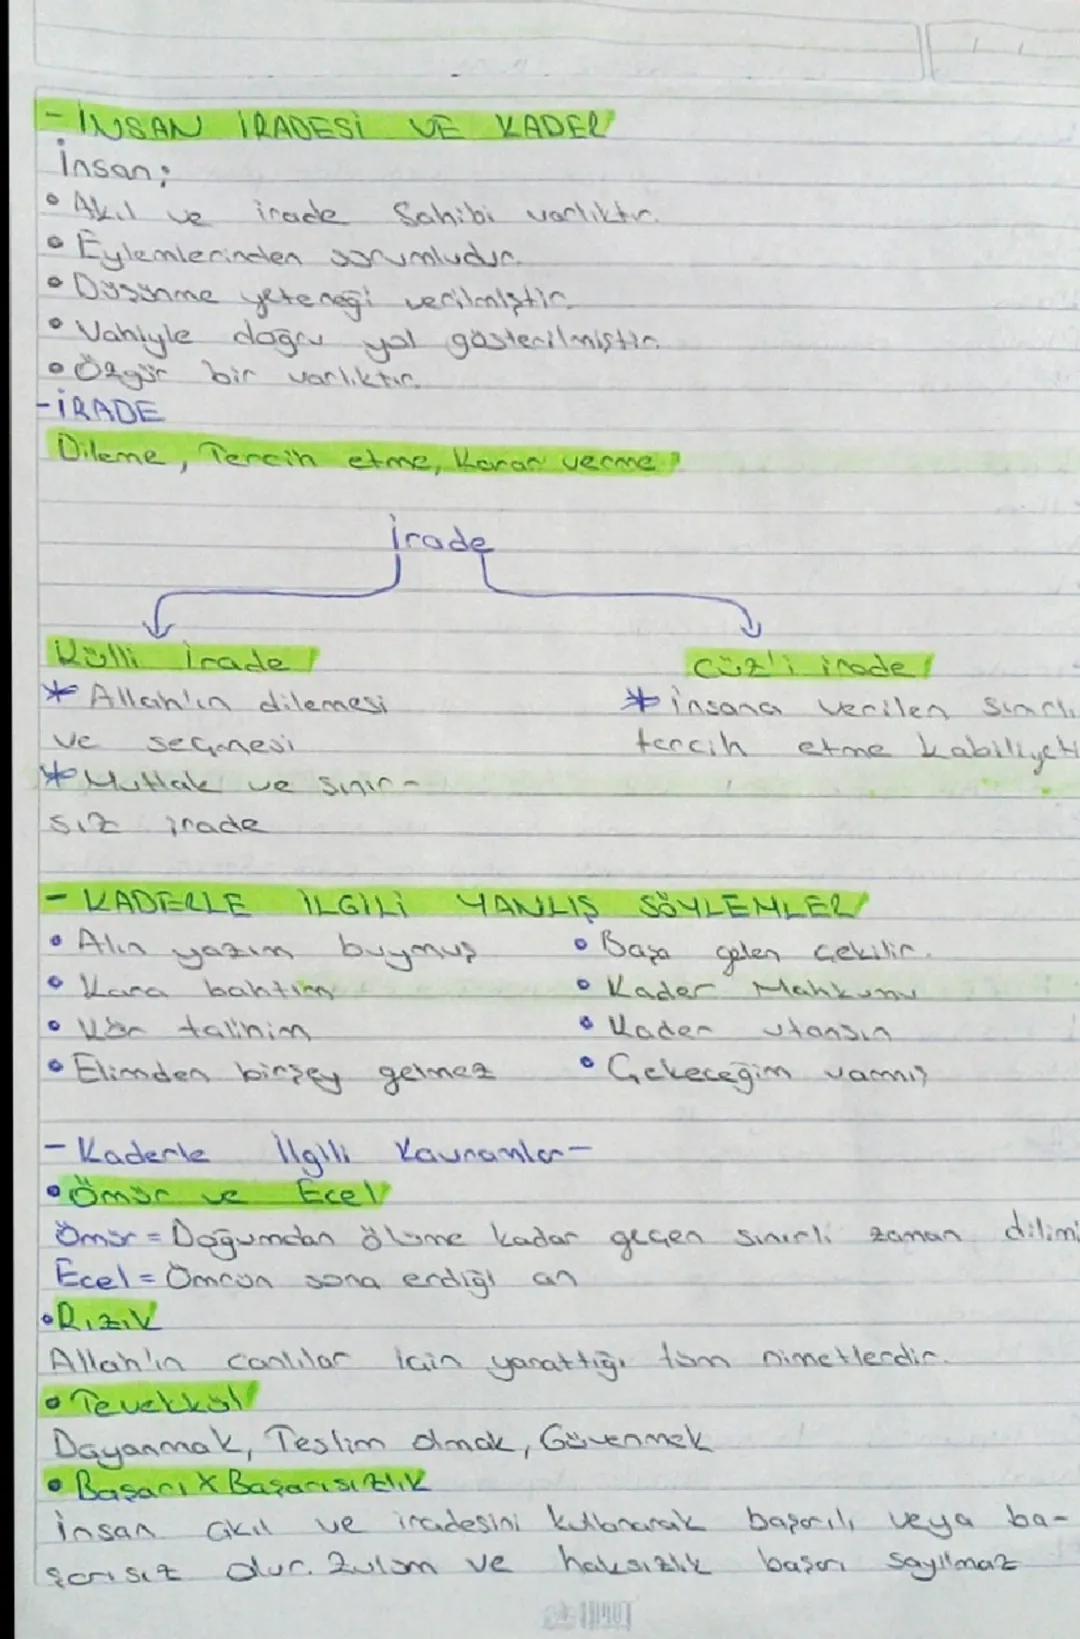 - İNSAN İRADESİ VE KADER
İnsan;
• Akıl ve irade Sahibi varlıktır.
• Eylemlerinden sorumludur.
• Düşünme yeteneği verilmiştir.
• Vahiyle doğru yol gösterilmiştir.
• Özgür bir varlıktır.
- İRADE
Dileme, Tercih etme, Karar verme
İrade
Külli İrade
Cüz'i irade
* Allah'ın dilemesi
ve seçmesi
* Mutlak ve sınır-
sız irade
* insana verilen sınırlı
tercih etme kabiliyeti
- KADERLE İLGİLİ YANLIŞ SÖYLEMLER
• Alın yazım buymuş
• Kara bahtım
• Kör talihim
• Elimden birşey gelmez
• Başa gelen çekilir.
• Kader Mahkumu
• Kader utansın
• Çekeceğim varmış
- Kaderle İlgili Kavramlar -
• Ömür ve Ecel
Ömür = Doğumdan ölüme kadar geçen sınırlı zaman dilimi
Ecel = Ömrün sona erdiği an
• Rızık
Allah'ın canlılar için yarattığı tüm nimetlerdir.
• Tevekkül
Dayanmak, Teslim olmak, Güvenmek
• Başarı X Başarısızlık
İnsan akıl ve iradesini kullanarak başarılı veya ba-
şarısız olur. Zulüm ve haksızlık başarı sayılmaz